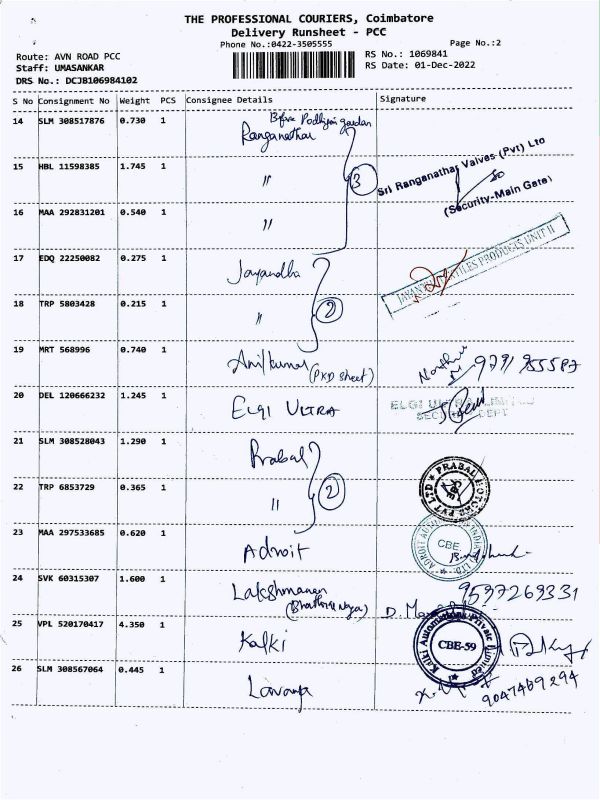 THE PROFESSIONAL COURIERS, Coimbatore
Delivery Runsheet - PCC
Phone No.:0422-3505555
Page No.:2
Route: AVN ROAD PCC
RS No.: 1069841
Staff: UMASANKAR
RS Date: 01-Dec-2022
DRS No.: DCJB106984102
S No Consignment No Weight PCS Consignee Details Signature
14 SLM 308517876 0.730 1 Ranganathar
15 HBL 11598385 1.745 1 〃 3 Sri Ranganathar Valves (Pvt) Ltd
(Security-Main Gate)
16 MAA 292831201 0.540 1 〃
17 EDQ 22250082 0.275 1 Jayandha
18 TRP 5803428 0.215 1 〃 2
19 MRT 568996 0.740 1 Anilkumar (PKD sheet)
20 DEL 120666232 1.245 1 ELGI ULTRA
21 SLM 308528043 1.290 1 Prabal
22 TRP 6853729 0.365 1 〃 2 PRABAL MOTORS PVT LTD
23 MAA 297533685 0.620 1 Adroit CBE.
24 SVK 60315307 1.600 1 Lakshmanan 9597269331
25 VPL 520170417 4.350 1 Kalki Kalki Automations Private Limited CBE-59
26 SLM 308567064 0.445 1 Lavanya 9047469294